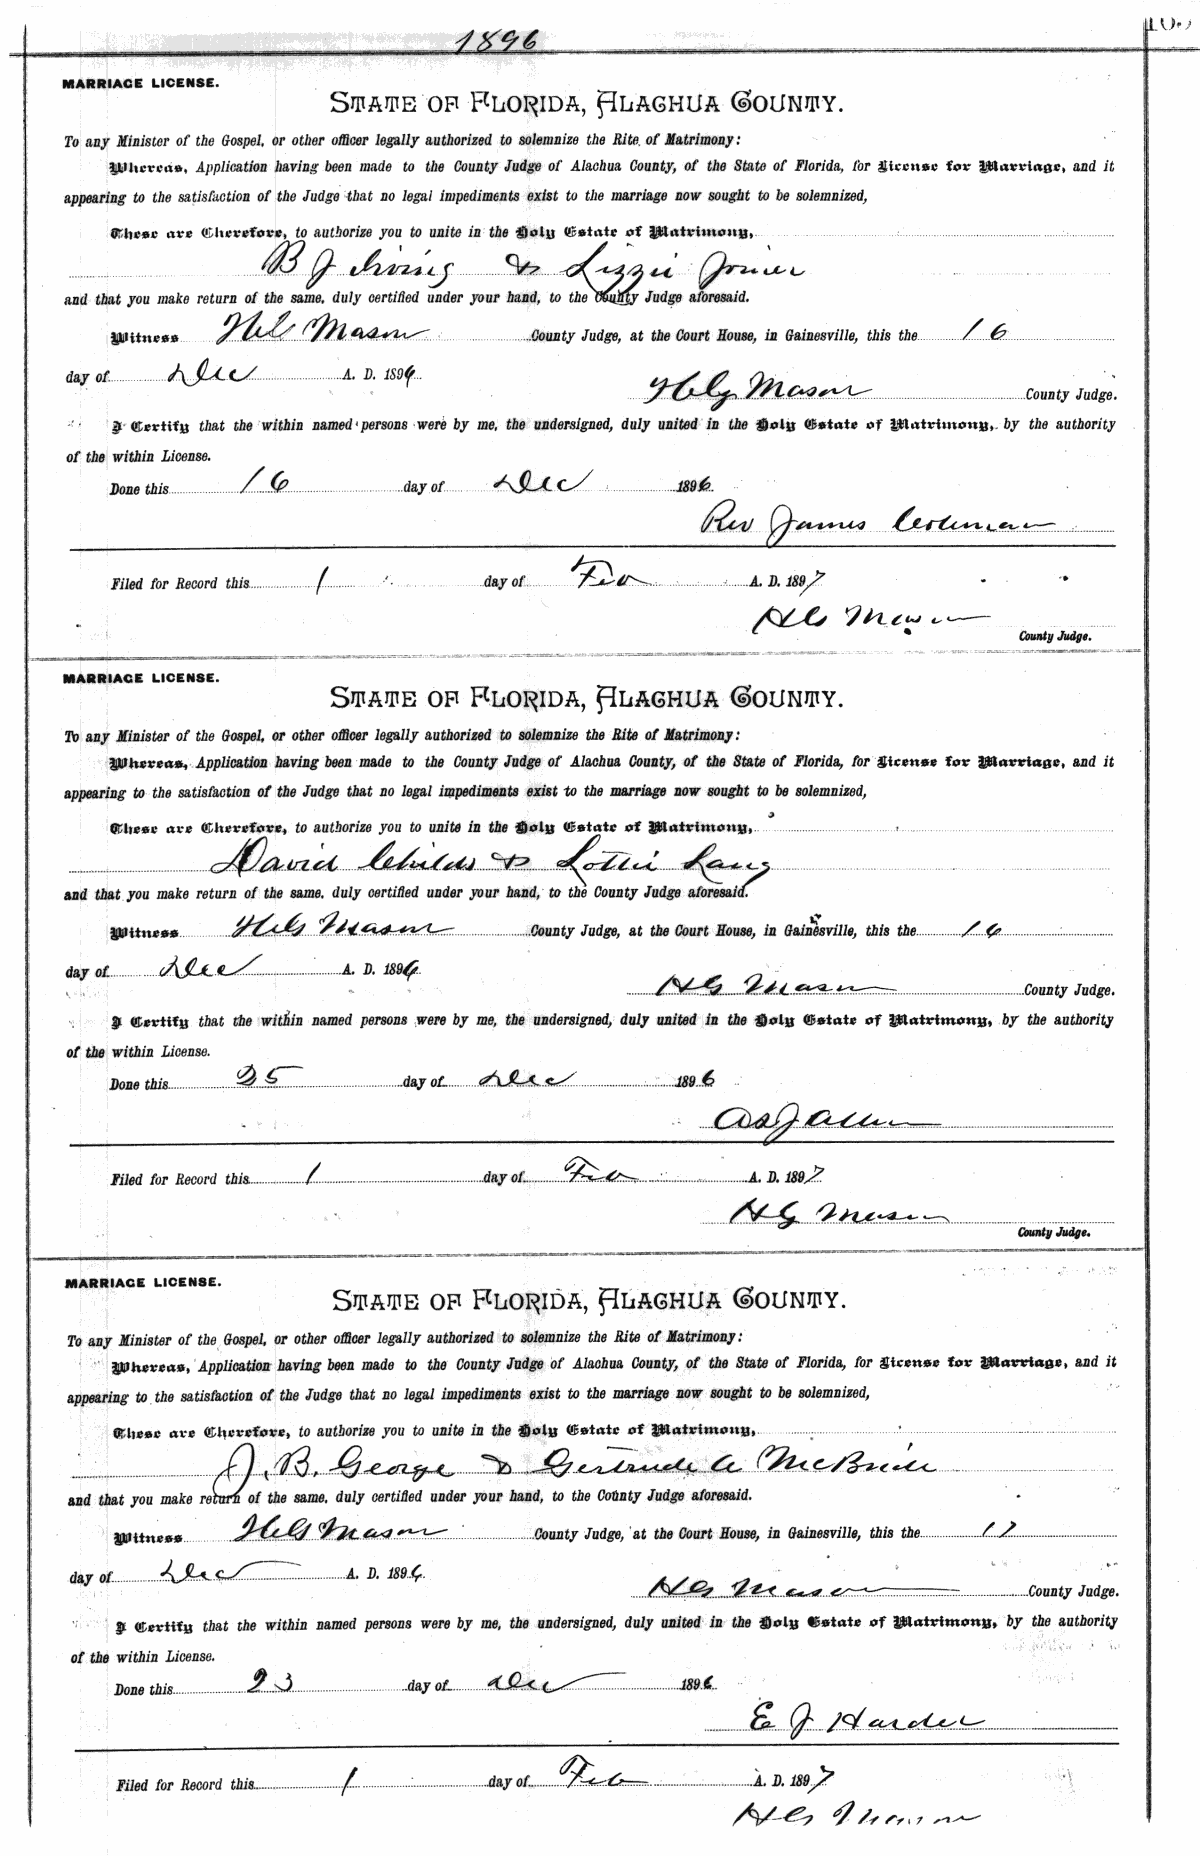 1896
MARRIAGE LICENSE.
STATE OF FLORIDA, ALACHUA COUNTY.
To any Minister of the Gospel, or other officer legally authorized to solemnize the Rite of Matrimony:
Whereas, Application having been made to the County Judge of Alachua County, of the State of Florida, for License for Marriage, and it
appearing to the satisfaction of the Judge that no legal impediments exist to the marriage now sought to be solemnized,
These are Therefore, to authorize you to unite in the Holy Estate of Matrimony,
B J Irving & Lizzie Joiner
and that you make return of the same, duly certified under your hand, to the County Judge aforesaid.
Witness H G Mason County Judge, at the Court House, in Gainesville, this the 16
day of Dec A. D. 1896
H G Mason County Judge.
I Certify that the within named persons were by me, the undersigned, duly united in the Holy Estate of Matrimony, by the authority
of the within License.
Done this 16 day of Dec 1896
Rev James Coleman
Filed for Record this 1 day of Feb A. D. 1897
H G Mason
County Judge.
MARRIAGE LICENSE.
STATE OF FLORIDA, ALACHUA COUNTY.
To any Minister of the Gospel, or other officer legally authorized to solemnize the Rite of Matrimony:
Whereas, Application having been made to the County Judge of Alachua County, of the State of Florida, for License for Marriage, and it
appearing to the satisfaction of the Judge that no legal impediments exist to the marriage now sought to be solemnized,
These are Therefore, to authorize you to unite in the Holy Estate of Matrimony,
David Childs & Lottie Lang
and that you make return of the same, duly certified under your hand, to the County Judge aforesaid.
Witness H G Mason County Judge, at the Court House, in Gainesville, this the 16
day of Dec A. D. 1896
H G Mason County Judge.
I Certify that the within named persons were by me, the undersigned, duly united in the Holy Estate of Matrimony, by the authority
of the within License.
Done this 25 day of Dec 1896
Allen
Filed for Record this 1 day of Feb A. D. 1897
H G Mason
County Judge.
MARRIAGE LICENSE.
STATE OF FLORIDA, ALACHUA COUNTY.
To any Minister of the Gospel, or other officer legally authorized to solemnize the Rite of Matrimony:
Whereas, Application having been made to the County Judge of Alachua County, of the State of Florida, for License for Marriage, and it
appearing to the satisfaction of the Judge that no legal impediments exist to the marriage now sought to be solemnized,
These are Therefore, to authorize you to unite in the Holy Estate of Matrimony,
J. B. George & Gertrude A McBride
and that you make return of the same, duly certified under your hand, to the County Judge aforesaid.
Witness H G Mason County Judge, at the Court House, in Gainesville, this the 17
day of Dec A. D. 1896
H G Mason County Judge.
I Certify that the within named persons were by me, the undersigned, duly united in the Holy Estate of Matrimony, by the authority
of the within License.
Done this 23 day of Dec 1896
E J Harder
Filed for Record this 1 day of Feb A. D. 1897
H G Mason